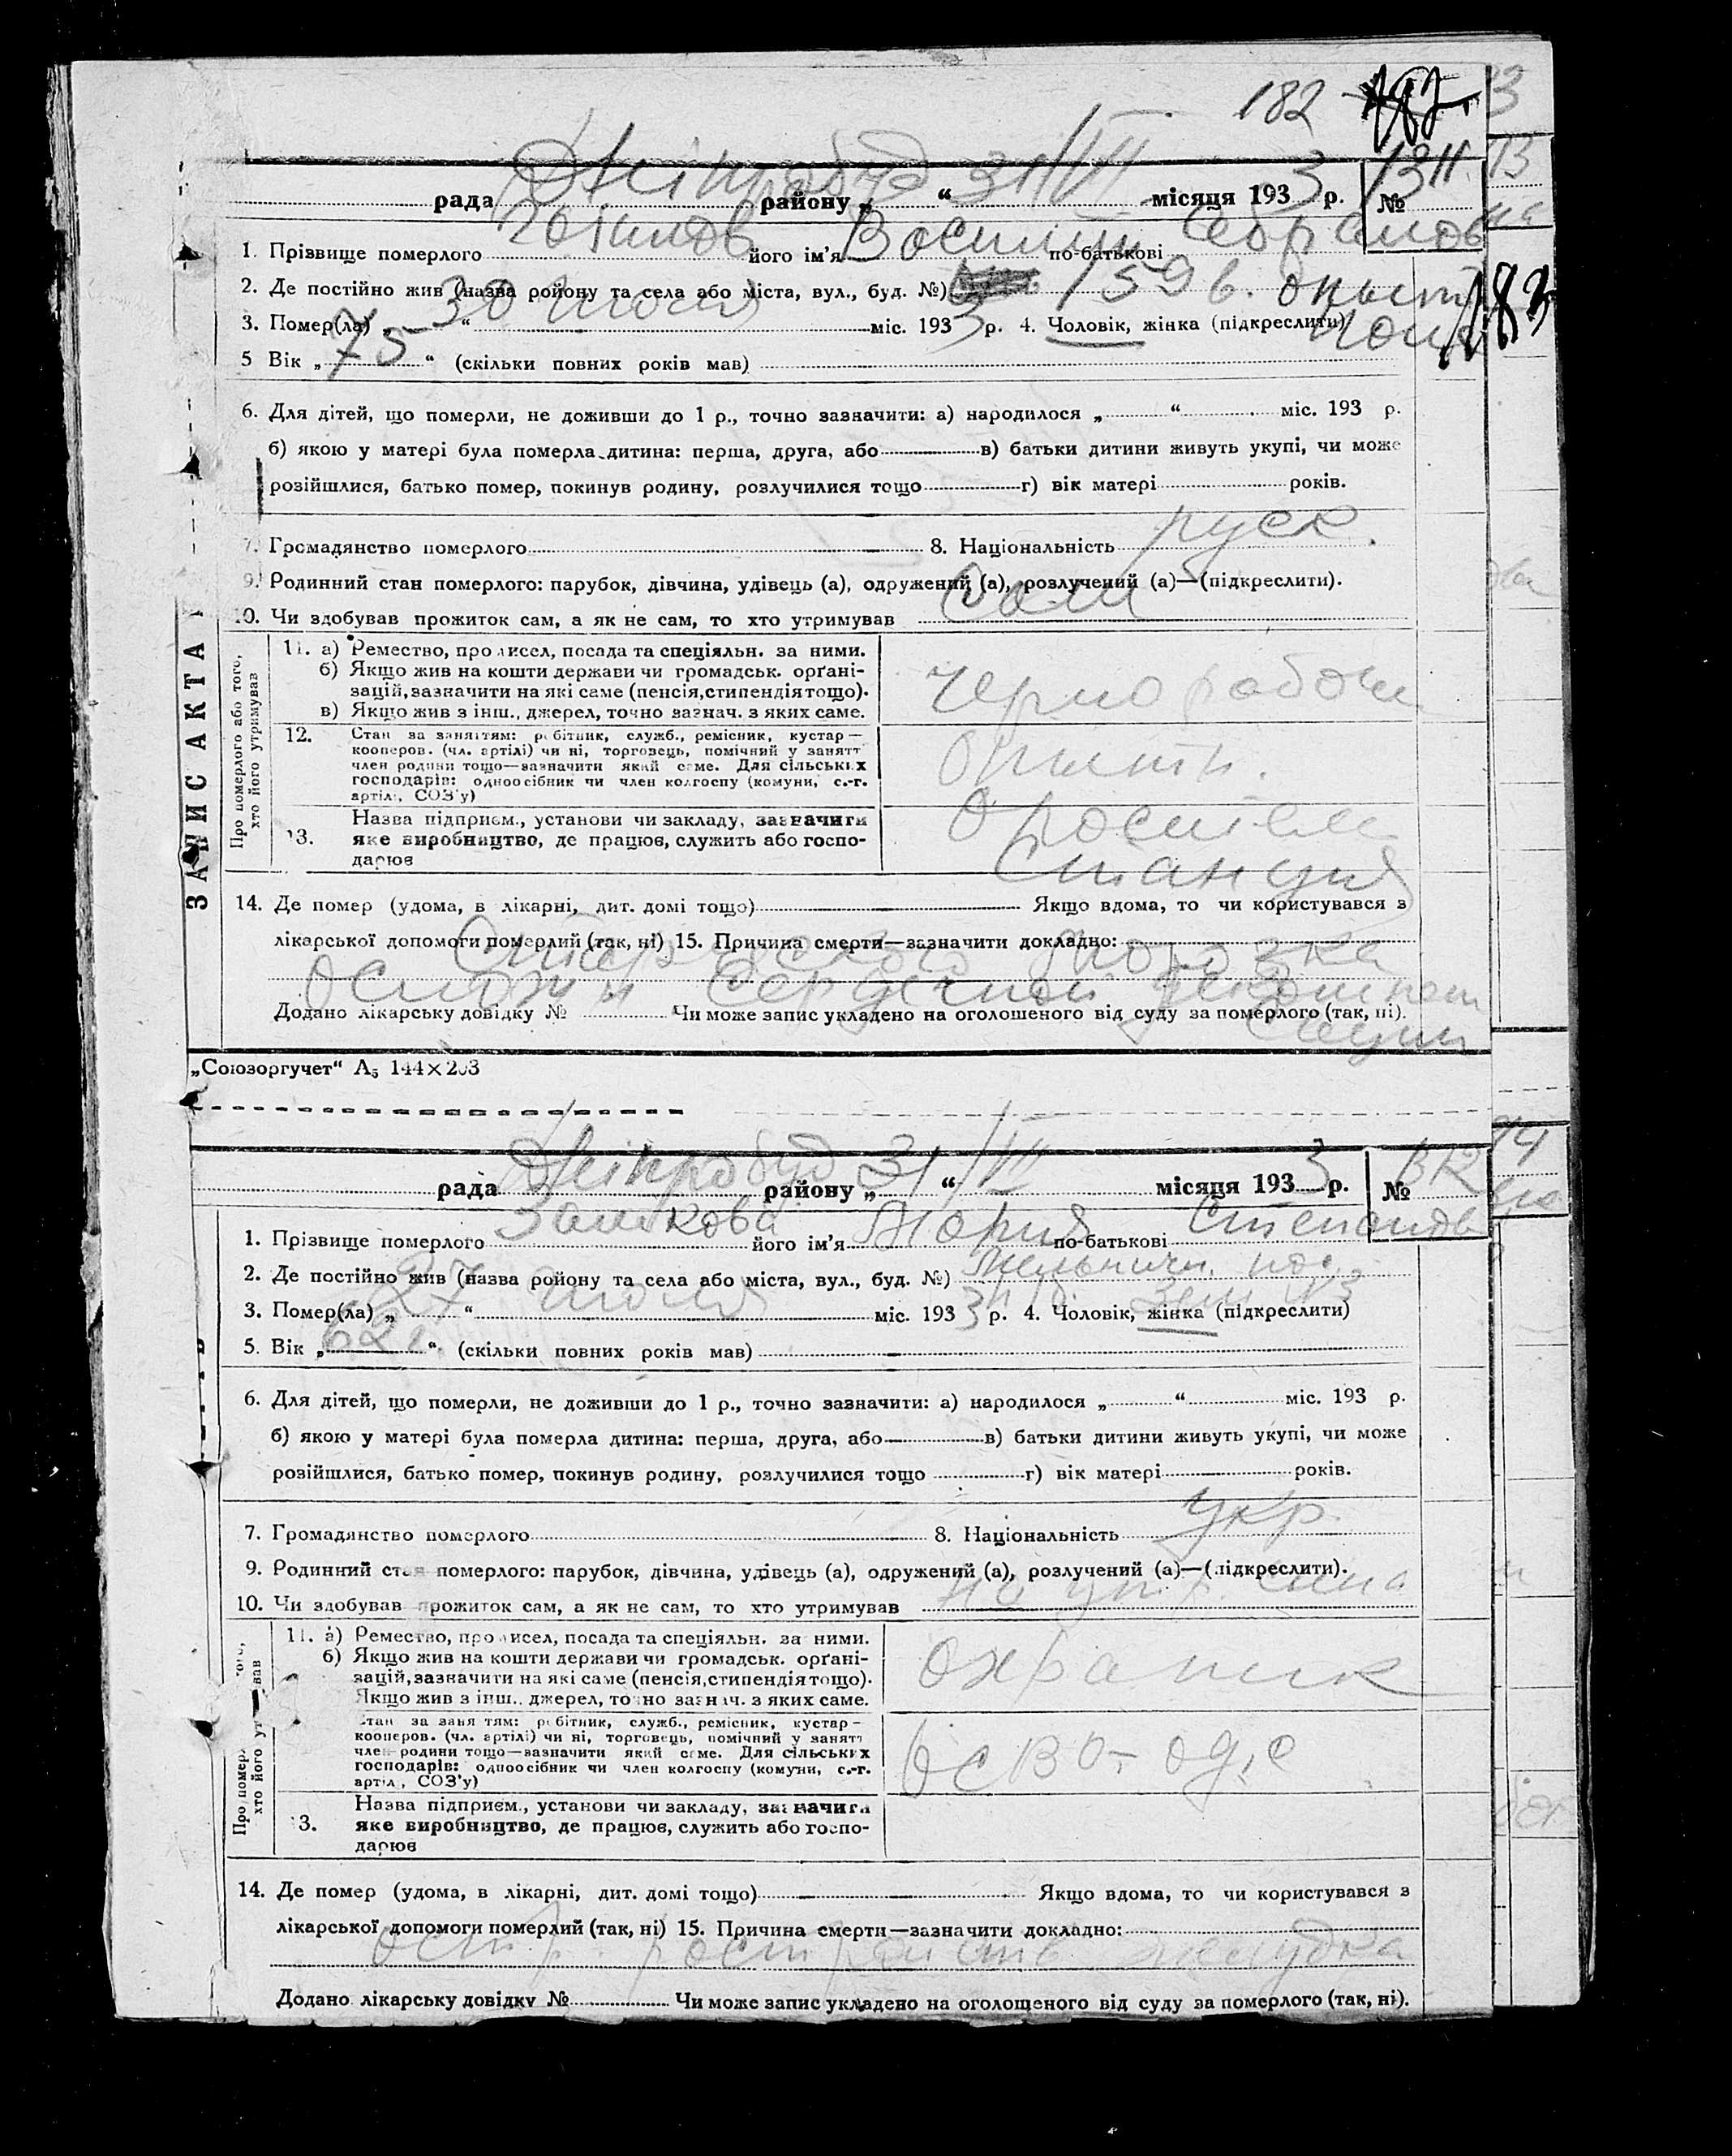 182
Дніпробуд 31/VII 3 1311
рада району „ “ місяця 193 р. №
1. Прізвище померлого його ім'я Василий по-батькові
2. Де постійно жив (назва ройону та села або міста, вул., буд. №) 159 в. опытн
183
3. Помер(ла) „ 30 “ июля міс. 193 3 р. 4. Чоловік, жінка (підкреслити)
5 Вік „ 75 “ (скільки повних років мав)
6. Для дітей, що померли, не доживши до 1 р., точно зазначити: а) народилося „ “ міс. 193 р.
б) якою у матері була померла дитина: перша, друга, або в) батьки дитини живуть укупі, чи може
розійшлися, батько помер, покинув родину, розлучилися тощо г) вік матері років.
7. Громадянство померлого 8. Національність руск.
9. Родинний стан померлого: парубок, дівчина, удівець (а), одружений (а), розлучений (а)—(підкреслити).
10. Чи здобував прожиток сам, а як не сам, то хто утримував Сам
ЗАПИС АКТА
Про померлого або того, хто його утримував
11. а) Ремество, промисел, посада та спеціяльн. за ними.
б) Якщо жив на кошти держави чи громадськ. орґані-
зацій, зазначити на які саме (пенсія, стипендія тощо).
в) Якщо жив з інш., джерел, точно зазнач. з яких саме.
чернорабочи
12. Стан за заняттям: робітник, служб., ремісник, кустар—
кооперов. (чл. артілі) чи ні, торговець, помічний у занятт
член родини тощо—зазначити який саме. Для сільських
господарів: одноосібник чи член колгоспу (комуни, с.-г.
артілі, СОЗ'у)
Опытн.
13. Назва підприєм., установи чи закладу, зазначити
яке виробництво, де працює, служить або госпо-
дарює
Оросител
Станция
14. Де помер (удома, в лікарні, дит. домі тощо) Якщо вдома, то чи користувався з
лікарської допомоги померлий (так, ні) 15. Причина смерти—зазначити докладно:
сердечной
Додано лікарську довідку № Чи може запис укладено на оголошеного від суду за померлого (так, ні).
„Союзоргучет“ А5 144×203
Дніпробуд 31/VII 3 1312
рада району „ “ місяця 193 р. №
1. Прізвище померлого Замкова його ім'я Мария по-батькові Степановн
2. Де постійно жив (назва ройону та села або міста, вул., буд. №) Мельничн. пос
3. Помер(ла) „ 27 “ июля міс. 193 3 р. 4. Чоловік, жінка (підкреслити)
5. Вік „ 62 г. “ (скільки повних років мав)
6. Для дітей, що померли, не доживши до 1 р., точно зазначити: а) народилося „ “ міс. 193 р.
б) якою у матері була померла дитина: перша, друга, або в) батьки дитини живуть укупі, чи може
розійшлися, батько помер, покинув родину, розлучилися тощо г) вік матері років.
7. Громадянство померлого 8. Національність Укр.
9. Родинний стан померлого: парубок, дівчина, удівець (а), одружений (а), розлучений (а)—(підкреслити).
10. Чи здобував прожиток сам, а як не сам, то хто утримував на ижд. сина
11. а) Ремество, промисел, посада та спеціяльн. за ними.
б) Якщо жив на кошти держави чи громадськ. орґані-
зацій, зазначити на які саме (пенсія, стипендія тощо).
Якщо жив з інш., джерел, точно зазнач. з яких саме.
охраник
Стан за заняттям: робітник, служб., ремісник, кустар—
кооперов. (чл. артілі) чи ні, торговець, помічний у занятт
член родини тощо—зазначити який саме. Для сільських
господарів: одноосібник чи член колгоспу (комуни, с.-г.
артілі, СОЗ'у)
13. Назва підприєм., установи чи закладу, зазначити
яке виробництво, де працює, служить або госпо-
дарює
14. Де помер (удома, в лікарні, дит. домі тощо) Якщо вдома, то чи користувався з
лікарської допомоги померлий (так, ні) 15. Причина смерти—зазначити докладно:
желудка
Додано лікарську довідку № Чи може запис укладено на оголошеного від суду за померлого (так, ні).